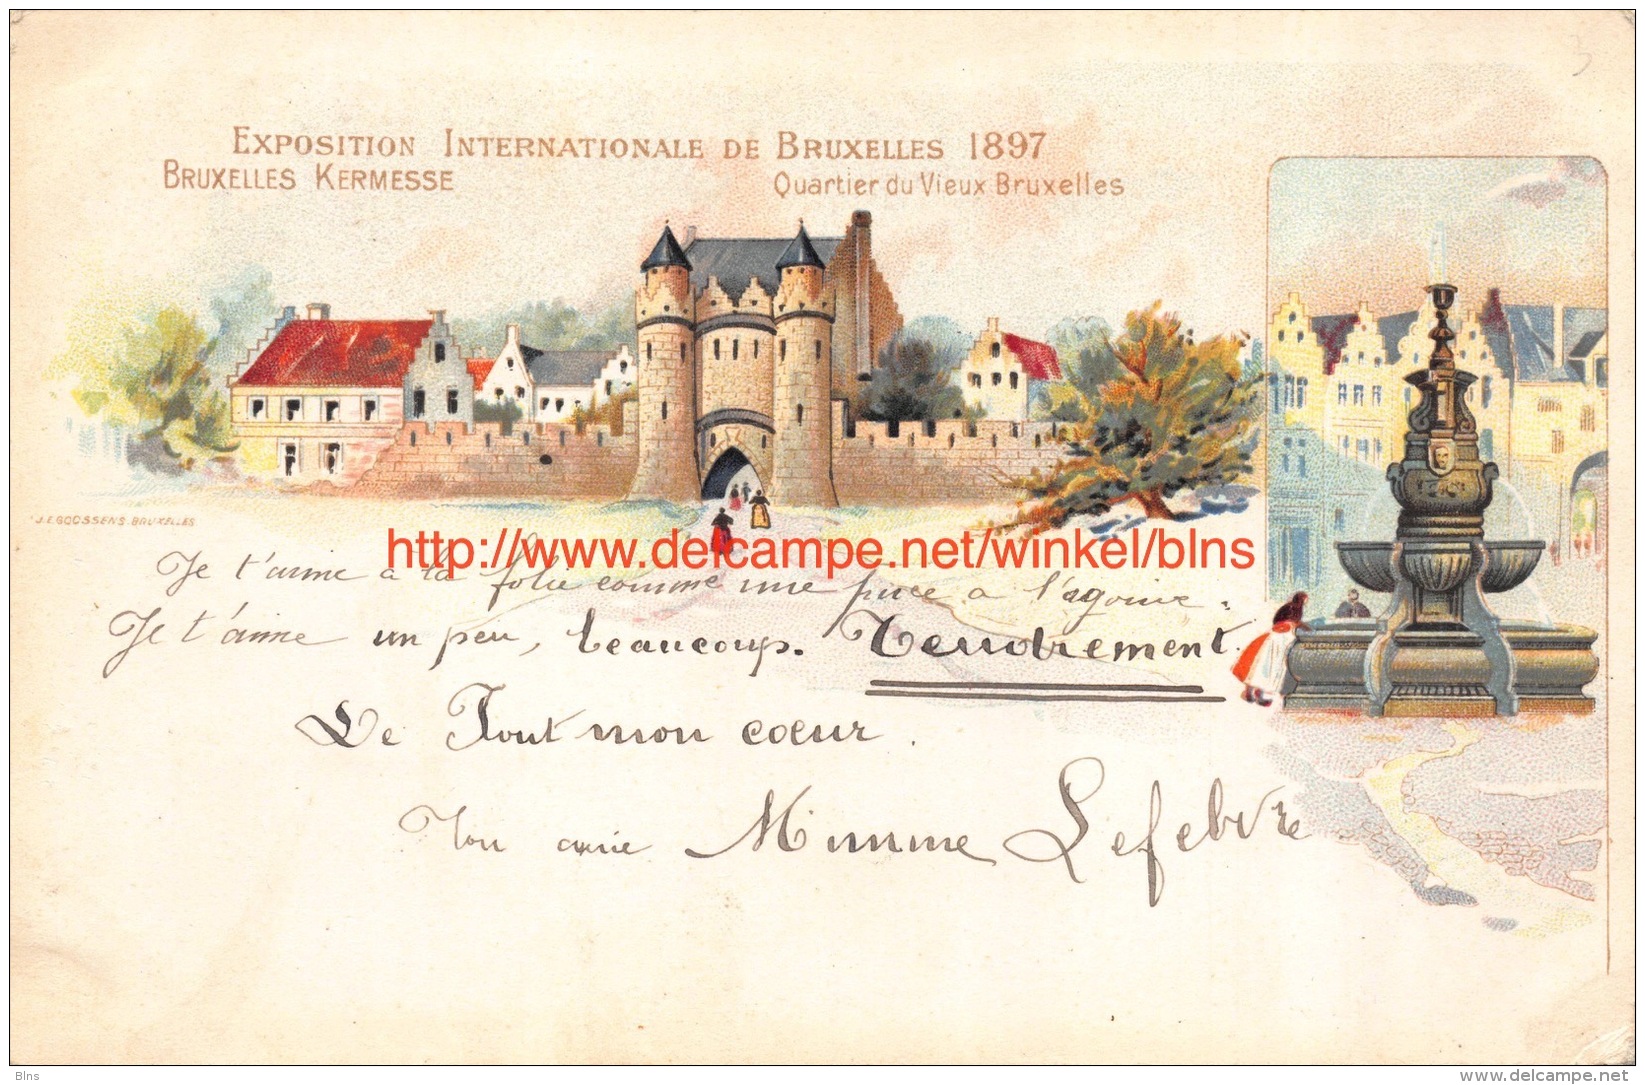 EXPOSITION INTERNATIONALE DE BRUXELLES 1897
BRUXELLES KERMESSE
Quartier du Vieux Bruxelles
J.E. GOOSSENS. BRUXELLES
http://www.delcampe.net/winkel/blns
Je t'aime à la folie comme une puce a l'agonie.
Je t'aime un peu, beaucoup. Tendrement.
De Tout mon cœur.
Ton amie Mimme Lefebvre
Blns
www.delcampe.net